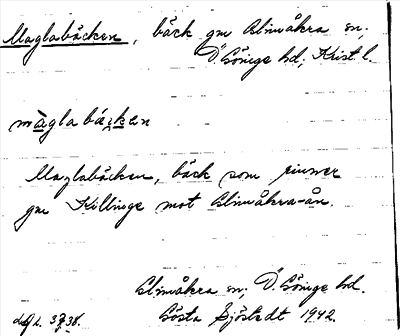 Maglabäcken, bäck gm Glimåkra sn,
Ö. Göinge hd, Krist. l.
màglabäcken
Maglabäcken, bäck som rinner
gm Killinge mot Glimåkra-ån.
Glimåkra sn, Ö. Göinge hd.
Gösta Sjöstedt 1942.